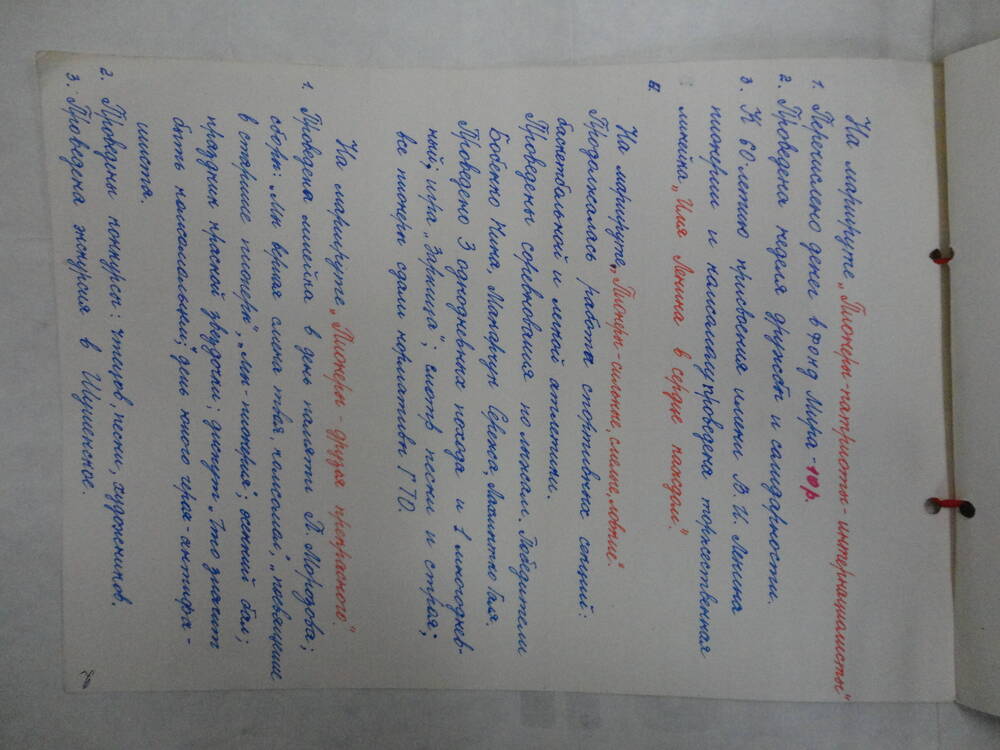 На маршруте „Пионеры-патриоты-интернационалисты"
1. Перечислено денег в фонд Мира - 10 р.
2. Проведена неделя дружбы и солидарности.
3. К 60-летию присвоения имени В. И. Ленина
пионерии и комсомолу проведена торжественная
линейка „Имя Ленина в сердце каждом".
На маршруте „Пионеры-сильные, смелые, ловкие".
Продолжалась работа спортивных секций:
баскетбольной и легкой атлетики.
Проведены соревнования по лыжам. Победители
Бобенко Нина, Макарчук Сережа, Галя.
Проведено 3 однодневных похода и 1 многоднев-
ный; игра „Зарница"; смотр песни и строя;
все пионеры сдали нормативы ГТО.
На маршруте „Пионеры - друзья прекрасного."
1. Проведена линейка в день памяти П. Морозова;
сборы: „Мы верная смена твоя, комсомол", „посвящение
в старшие пионеры", „Мы-пионерия"; осенний бал;
праздник красной звездочки; диспут „Что значит
быть комсомольцем"; день юного героя-антифа-
шиста.
2. Проведены конкурсы: чтецов, песни, художников.
3. Проведена экскурсия в Шушенское.